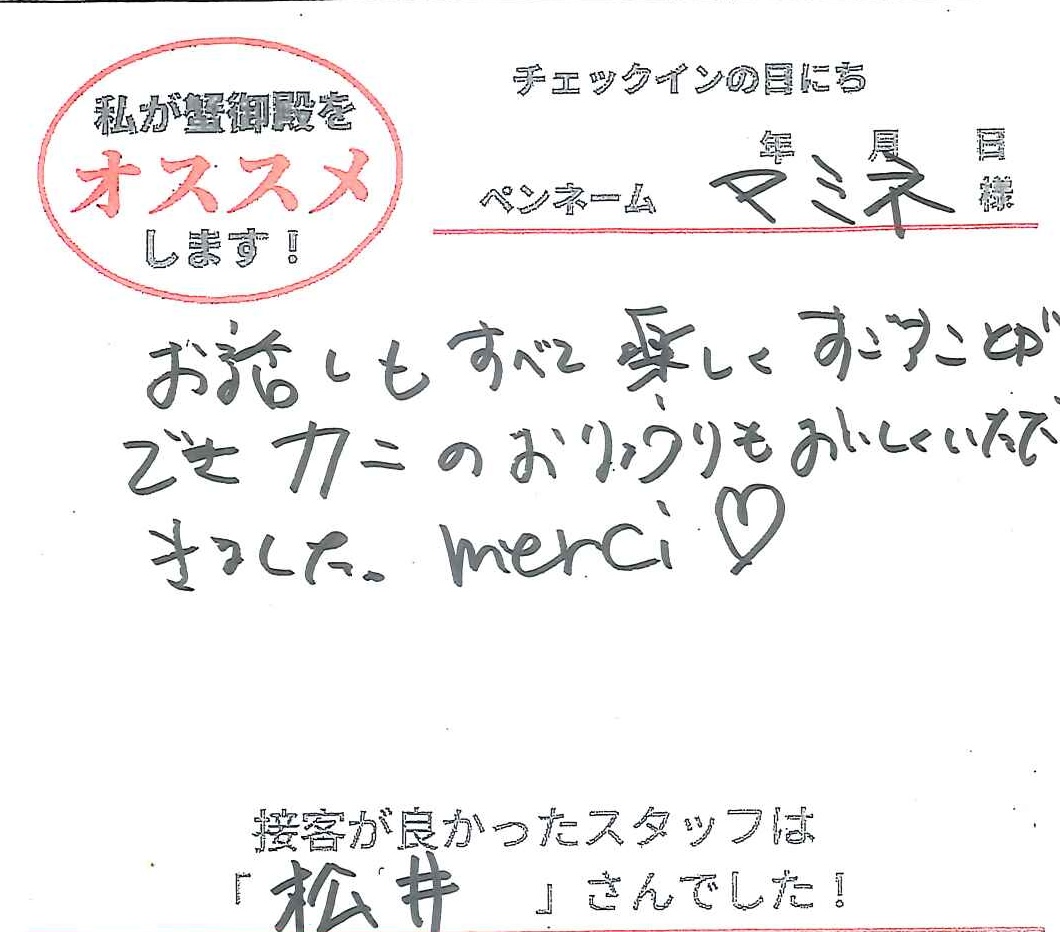 私が蟹御殿を
オススメ
します！
チェックインの日にち
年 月 日
ペンネーム マミネ 様
お話しもすべて楽しくすごすことが
でき カニのおりょうりもおいしくいただ
きました。merci♡
接客が良かったスタッフは
「松井」さんでした！